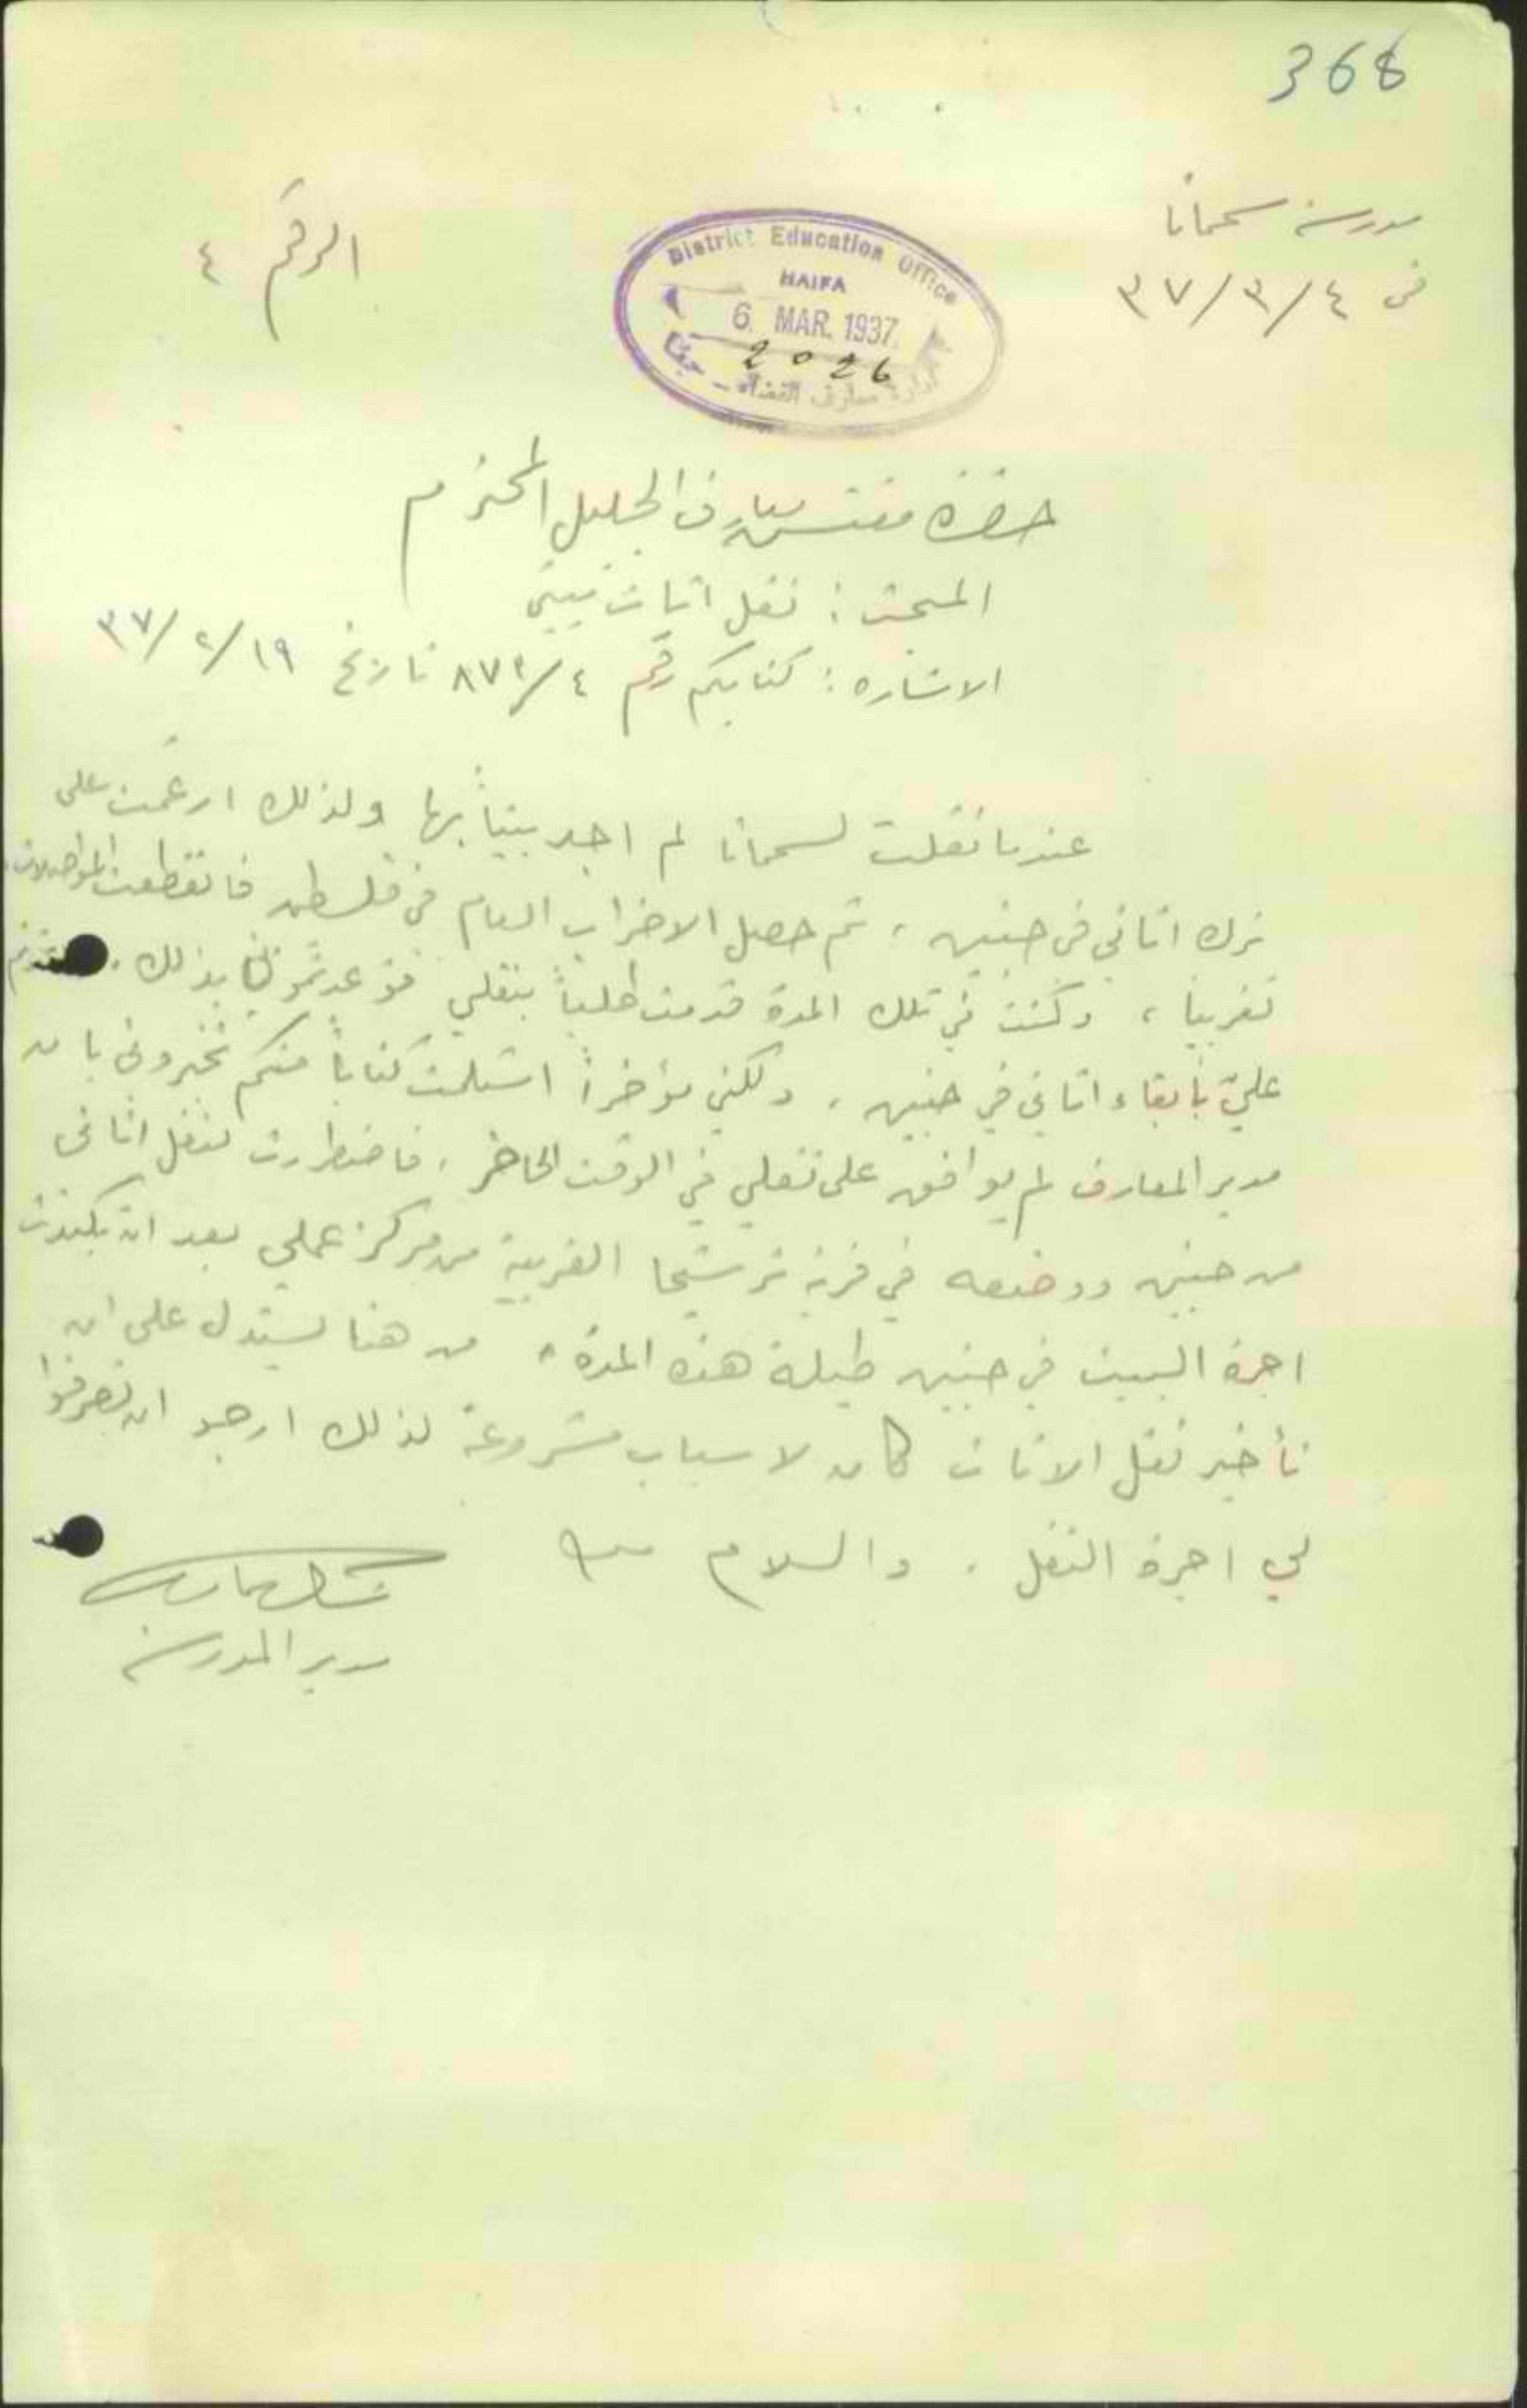 368
مدرسة سحماتا
في ٤/٣/٣٧
الرقم ٤
District Education Office
HAIFA
6 MAR. 1937
2026
ادارة معارف القضاء - حيفا
حضرة مفتش معارف الجليل المحترم
المبحث : نقل اثاث بيتي
الاشاره : كتابكم رقم ٨٧٣/٤ تاريخ ١٩/٢/٣٧
عندما نقلت لسحماتا لم اجد بيتاً بها ولذلك ارغمت على
ترك اثاثي في جنين ، ثم حصل الاضراب العام في فلسطين فانقطعت المواصلات
تقريبا ، وكنت في تلك المدة قدمت طلباً بنقلي فوعدتموني بذلك .
عليّ بابقاء اثاثي في جنين . ولكني مؤخراً استلمت كتاباً منكم تخبروني بان
مدير المعارف لم يوافق على نقلي في الوقت الحاضر . فاضطررت لنقل اثاثي
من جنين ووضعه في قرية ترشيحا القريبة من مركز عملي بعد ان تكبدت
اجرة البيت في جنين طيلة هذه المدة . من هنا يستدل على ان
تأخير نقل الاثاث كان لاسباب مشروعة لذلك ارجو ان تصرفوا
لي اجرة النقل . والسلام
مدير المدرسة